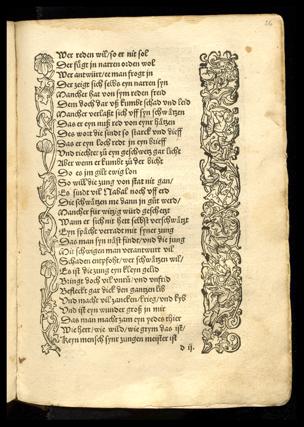 26
Wer reden wil/so er nit sol
Der fügt jn narren orden wol
Wer antwürt/ee man frogt jn
Der zeigt sich selbs eyn narren syn
Mancher hat von sym reden freid
Dem doch dar vß kumbt schad vnd leid
Mancher verlaßt sich vff syn schwätzen
Das er eyn nuß red von eynr hätzen
Des wort die sindt so starck vnd dieff
Das er eyn loch redt jn eyn brieff
Vnd richtet zů eyn geschwetz gar licht
Aber wenn er kumbt zů der bicht
Do es jm gilt ewig lon
So will die zung von stat nit gan/
Es sindt vil Nabal noch vff erd
Die schwätzen me dann jn gůt werd/
Mancher für witzig würd geschetzt
Wann er sich nit hett selbst verschwätzt
Eyn spächt verradt mit syner zung
Das man syn näst findt/vnd die jung
Mit schwigen man verantwurt vil
Schaden empfoht/wer schwätzen wil/
Es ist die zung eyn kleyn gelid
Bringt doch vil vnrů/vnd vnfrid
Befleckt gar dick den gantzen lib
Vnd macht vil zancken/krieg/vnd kyb
Vnd ist eyn wunder groß jn mir
Das man macht zam eyn yedes thier
Wie hert/wie wild/wie grym das ist/
Keyn mensch synr zungen meister ist
d ij.